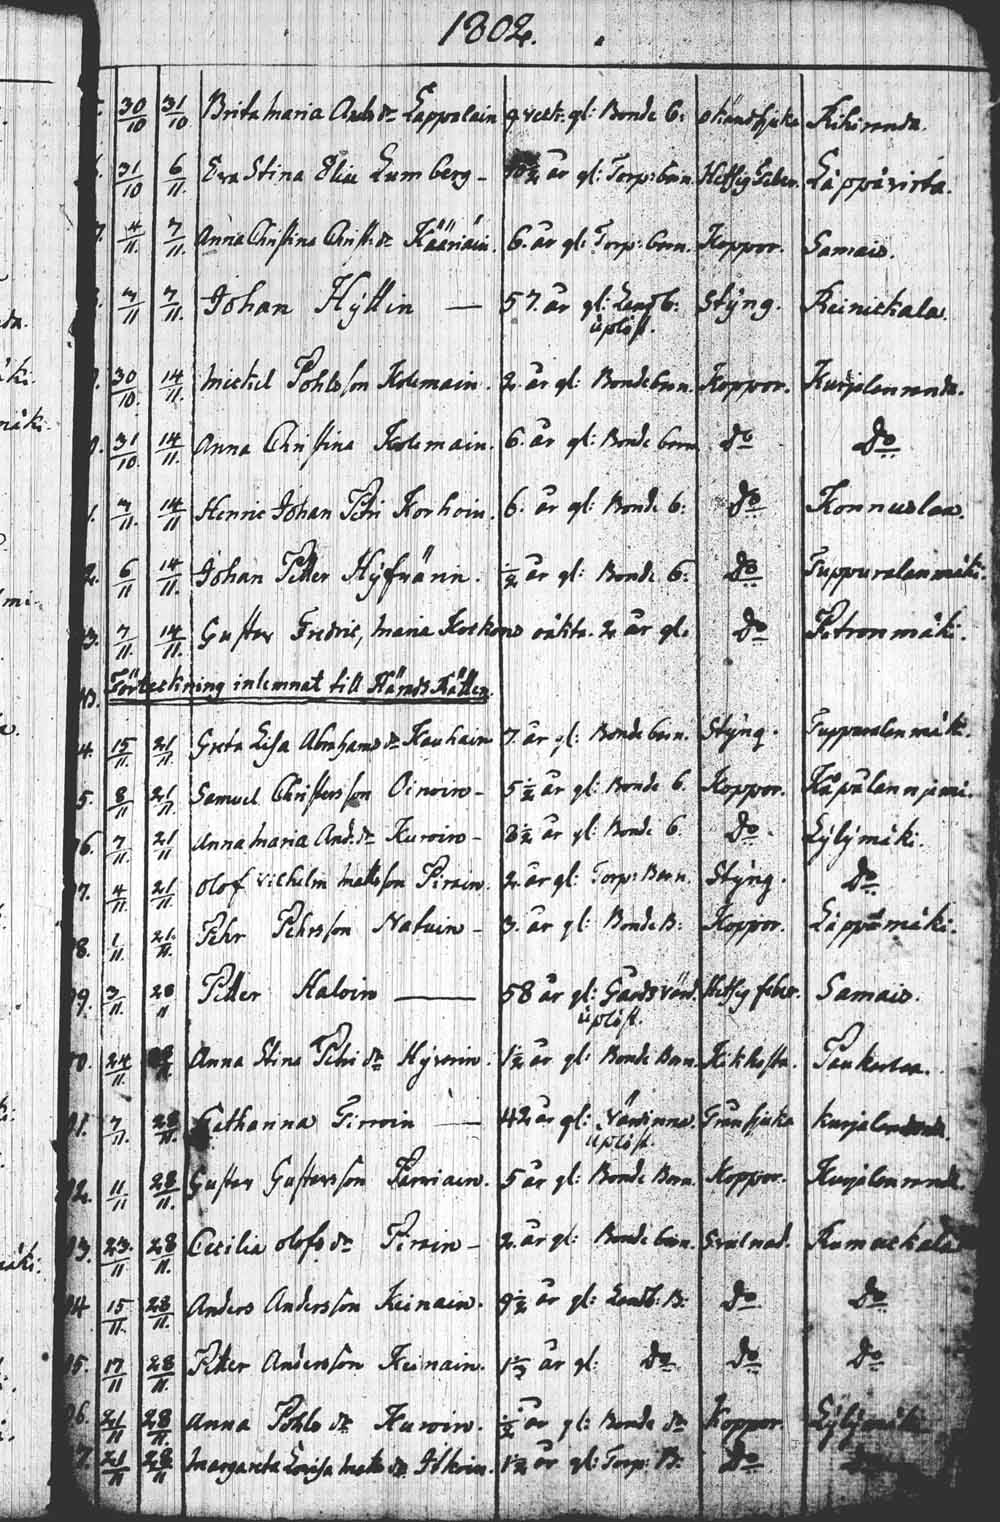 1802.
30/10 31/10 Brita Maria Ands dr Lappalain 9 veck: gl: Bonde b: okänd sjuka Kihiranda.
31/10 6/11 Eva Stina Eliæ Lumberg - 10 1/2 år gl: Torp: barn. Hettsig Feber. Läppävirta.
4/11 7/11 Anna Christina Christ: dr Kääriäin. 6. år gl: Torp: barn. Koppor. Samais.
7/11 7/11 Johan Hyttin — 57. år gl: Landb: Stÿng. Reinickala.
üplöst.
30/10 14/11 Mickel Pohlsson Kolemain. 2. år gl: Bonde barn. Koppor. Kurjalanranda.
31/10 14/11 Anna Christina Kolemain. 6. år gl: Bonde barn Do Do
7/11 14/11 Henric Johan Petri Korhoin. 6. år gl: Bonde b: Do Konnuslax.
6/11 14/11 Johan Petter Hÿfvärin. 1/2 år gl: Bonde b: Do Tuppuralanmäki.
7/11 14/11 Gustav Fredric, Maria Koskens oäkta. 2 år gl. Do Petronmäki.
Förteckning inlemnat till Härads Rätten.
4. 15/11 21/11 Greta Lisa Abrahams dr Kauhain 7. år gl: Bonde barn. Stÿng. Tuppuralanmäki.
5. 8/11 21/11 Samuel Christersson Oinoin - 5 1/2 år gl: Bonde b. Koppor.
6. 7/11 21/11 Anna Maria And: dr Kuroin - 3 1/2 år gl: Bonde b. Do. Lÿlÿmäki.
7. 4/11 21/11 Olof Vilhelm Mattsson Pirain. 2. år gl: Torp: Barn. Stÿng. Do
8. 1/11 21/11 Pehr Pehrsson Natuin - 3. år gl: Bonde B: Koppor. Läppämäki.
9. 3/11 28/11 Petter Haloin — 58 år gl: Gårdsvärd. Hettsig feber. Samais.
üplöst.
24/11 28/11 Anna Stina Petri dr Hÿvärin. 1 1/2 år gl: Bonde Barn. Kikhosta. Paukarlax.
1. 7/11 28/11 Catharina Tirroin — 42 år gl: Värdinna. Tränsjuka Kurjalanranda.
üplöst.
2. 11/11 28/11 Gustav Gustavsson Parviain. 5 år gl: Bonde Barn. Koppor. Kurjalanranda.
3. 23/11 28/11 Cecilia Olofs dr Pirain - 2. år gl: Bonde barn. Svulnad.
4 15/11 28/11 Anders Andersson Keinain. 9 1/2 år gl: Landb: B: Do Do
5. 17/11 28/11 Petter Andersson Keinain. 1 1/2 år gl: Do Do Do
6. 21/11 28/11 Anna Pohls dr Kuroin. 1/2 år gl: Bonde dr Koppor. Lÿlÿmäki
7. 21/11 28/11 Margareta Lovisa Mats dr 1 1/2 år gl: Torp: B: Do Do